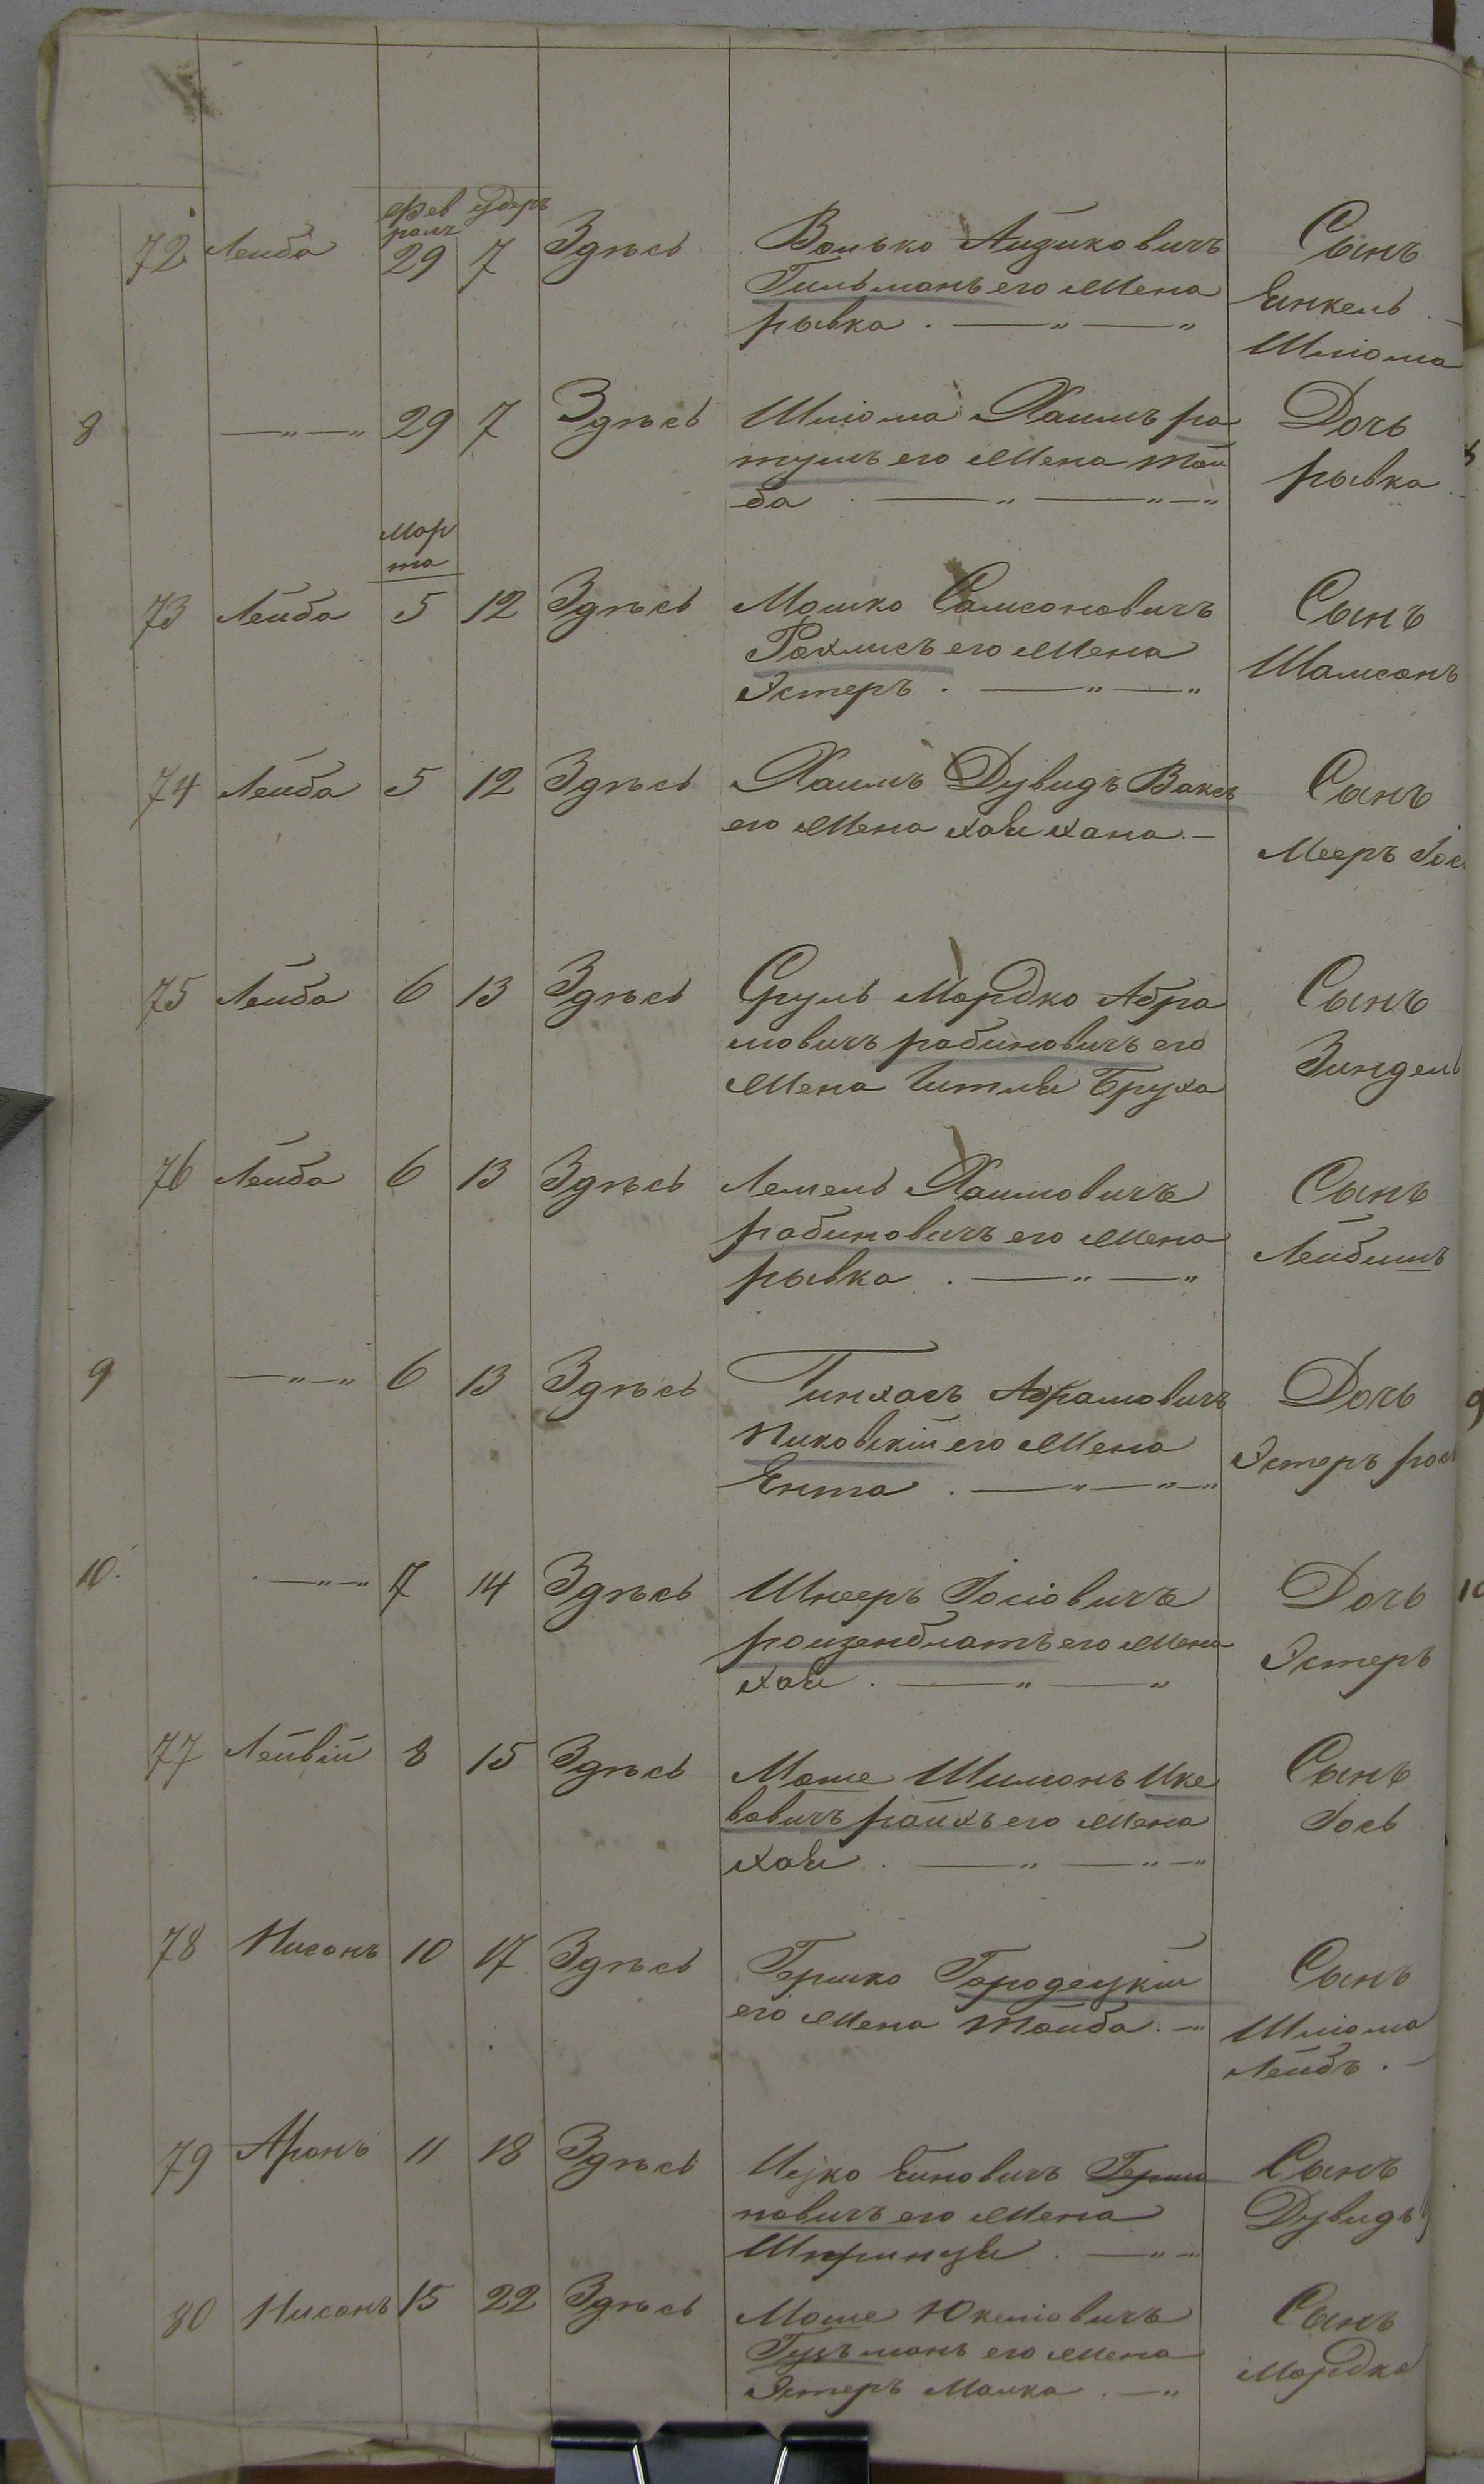 Фев удеръ
раля
72 Лейба 29 7 Здѣсь Волько Айзиковичъ Сынъ
Гильманъ его Жена Еинкель
рывка . — " — " Шлиома
8 — " — " 29 7 Здѣсь Шлиома Хаимъ ра Дочь
тушъ его Жена Той рывка
ба . — " — " — "
Мар
та
73 Лейба 5 12 Здѣсь Мошко Самсоновичъ Сынъ
Рохлисъ его Жена Шамсонъ
Эстеръ . — " — "
74 Лейба 5 12 Здѣсь Хаимъ Дувидъ Ваксъ Сынъ
его Жена хая хана . — Мееръ Іос
75 Лейба 6 13 Здѣсь Сруль Мордко Абра Сынъ
мовичъ рабиновичъ его Зиндель
Жена Гитля Бруха
76 Лейба 6 13 Здѣсь Лемель Хаимовичъ Сынъ
рабиновичъ его Жена Лейбишъ
рывка . — " — "
9 — " — " 6 13 Здѣсь Пинхасъ Абрамовичъ Дочь 9
Пиковскій его Жена Эстеръ
Ента . — " — " — "
10. — " — " 7 14 Здѣсь Шнееръ Іосіовичъ Дочь 10
роизенблатъ его Жена Эстеръ
хая . — " — "
77 Лейвій 8 15 Здѣсь Моше Шимонъ Ике Сынъ
вовичъ райхъ его Жена Іось
хая . — " — " — "
78 Нисонъ 10 17 Здѣсь Гершко Городецкій Сынъ
его Жена Тойба . — " Шлиома
Лейбъ . —
79 Аронъ 11 18 Здѣсь Ицко Еиновичъ Герш Сынъ
новичъ его Жена Дувидъ
Шпринця . — " — "
80 Нисонъ 15 22 Здѣсь Моше Юкеліовичъ Сынъ
Гузьманъ его Жена Мордко
Эстеръ Малка . — "